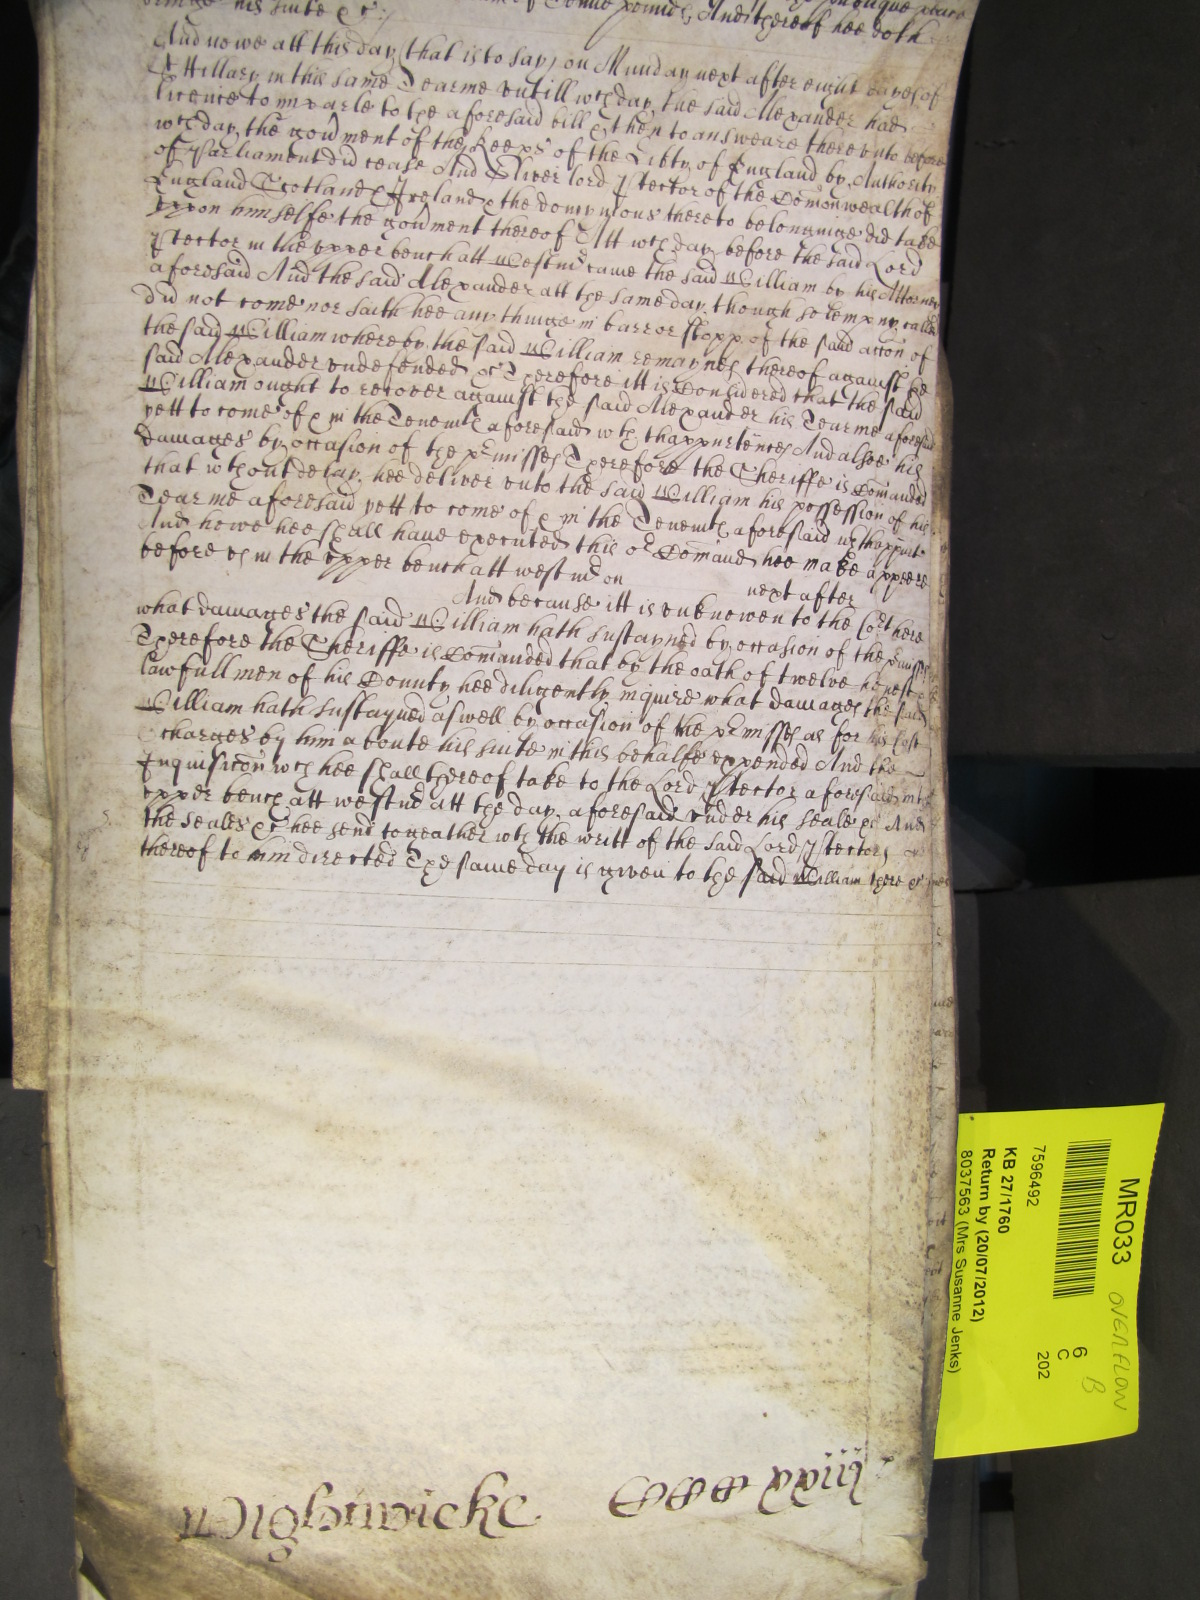 bringe his suite &c
And thereof hee doth
And nowe att this day (that is to say) on Munday next after eight dayes of
St Hillary in this same Tearme untill wch day the said Alexander had
licence to imparle to the aforesaid bill & then to answeare thereunto before
wch day the govment of the Keeps of the Libty of England by Authority
of Parliament did cease And Oliver lord Ptector of the Comonwealth of
England Scotland & Ireland & the dominions thereto belonginge did take
uppon himselfe the govment thereof Att wch day before the said Lord
Ptector in the upper bench att Westmr came the said William by his Attorney
aforesaid And the said Alexander att the same day though solempny called
did not come nor saith hee any thinge in barr or stopp of the said accon of
the said William whereby the said William remaynes thereof against the
said Alexander undefended &c Therefore itt is Considered that the said
William ought to recover against the said Alexander his Tearme aforesaid
yett to come of & in the Tenemts aforesaid wth thappurtences And alsoe his
damages by occasion of the pmisses Therefore the Sheriffe is Comanded
that wthout delay hee deliver unto the said William his possession of his
Tearme aforesaid yett to come of & in the Tenemts aforesaid wth thappurt
And howe hee shall have executed this or Comand hee make appeare
before us in the upper bench att Westmr on next after
And because itt is unknowen to the Cort here
what damages the said William hath sustayned by occasion of the pmisses
Therefore the Sheriffe is Comanded that by the oath of twelve honest &
lawfull men of his County hee diligently inquire what damages the said
William hath sustayned aswell by occasion of the pmisses as for his Costs
& charges by him aboute his suite in this behalfe expended And the
Inquisicon wch hee shall thereof take to the Lord Ptector aforesaid in the
upper bench att Westmr att the day aforesaid under his seale &c And
the seales &c hee send togeather wth the writt of the said Lord Ptector
thereof to him directed The same day is given to the said William there &c
Wightwicke xxiij
MR033 OVERFLOW
6 B
C
202
7596492
KB 27/1760
Return by (20/07/2012)
8037563 (Mrs Susanne Jenks)